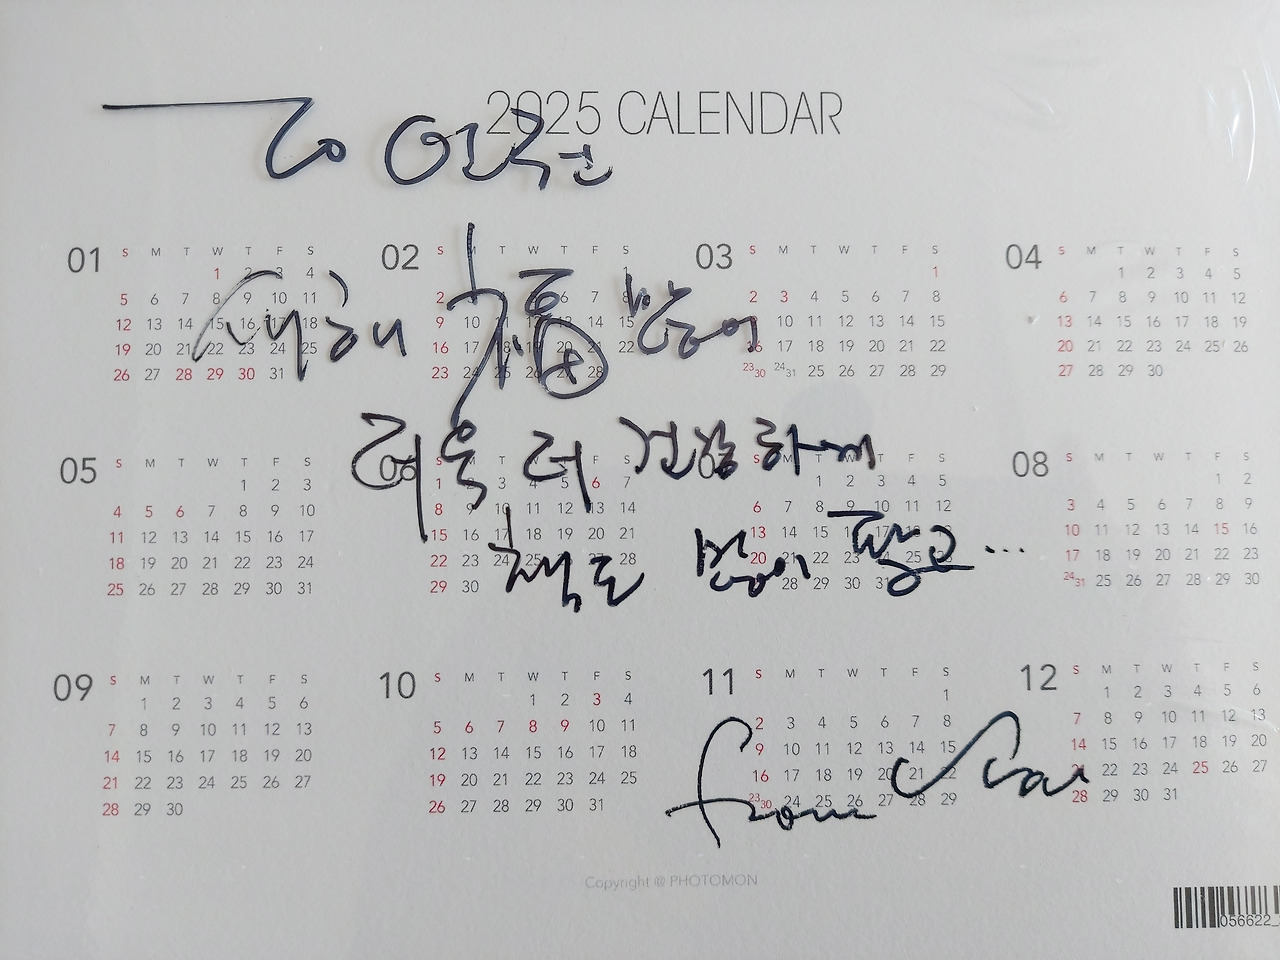 2025 CALENDAR
To
새해 福 많이
더욱 더 건강하며
책도 많이
from
01
S M T W T F S
1 2 3 4
5 6 7 8 9 10 11
12 13 14 15 16 17 18
19 20 21 22 23 24 25
26 27 28 29 30 31
02
S M T W T F S
1
2 6 7 8
9 10 11 12 13 14 15
16 17 18 19 20 21 22
23 24 25 26 27 28
03
S M T W T F S
1
2 3 4 5 6 7 8
9 10 11 12 13 14 15
16 17 18 19 20 21 22
23 30 24 31 25 26 27 28 29
04
S M T W T F S
1 2 3 4 5
6 7 8 9 10 11 12
13 14 15 16 17 18 19
20 21 22 23 24 25 26
27 28 29 30
05
S M T W T F S
1 2 3
4 5 6 7 8 9 10
11 12 13 14 15 16 17
18 19 20 21 22 23 24
25 26 27 28 29 30 31
06
S M T W T F S
1 2 3 4 5 6 7
8 9 10 11 12 13 14
15 16 17 18 19 20 21
22 23 24 25 26 27 28
29 30
07
S M T W T F S
1 2 3 4 5
6 7 8 9 10 11 12
13 14 15 16 17 18 19
20 21 22 23 24 25 26
27 28 29 30 31
08
S M T W T F S
1 2
3 4 5 6 7 8 9
10 11 12 13 14 15 16
17 18 19 20 21 22 23
24 31 25 26 27 28 29 30
09
S M T W T F S
1 2 3 4 5 6
7 8 9 10 11 12 13
14 15 16 17 18 19 20
21 22 23 24 25 26 27
28 29 30
10
S M T W T F S
1 2 3 4
5 6 7 8 9 10 11
12 13 14 15 16 17 18
19 20 21 22 23 24 25
26 27 28 29 30 31
11
S M T W T F S
1
2 3 4 5 6 7 8
9 10 11 12 13 14 15
16 17 18 19 20 21 22
23 30 24 25 26 27 28 29
12
S M T W T F S
1 2 3 4 5 6
7 8 9 10 11 12 13
14 15 16 17 18 19 20
21 22 23 24 25 26 27
28 29 30 31
Copyright @ PHOTOMON
056622_